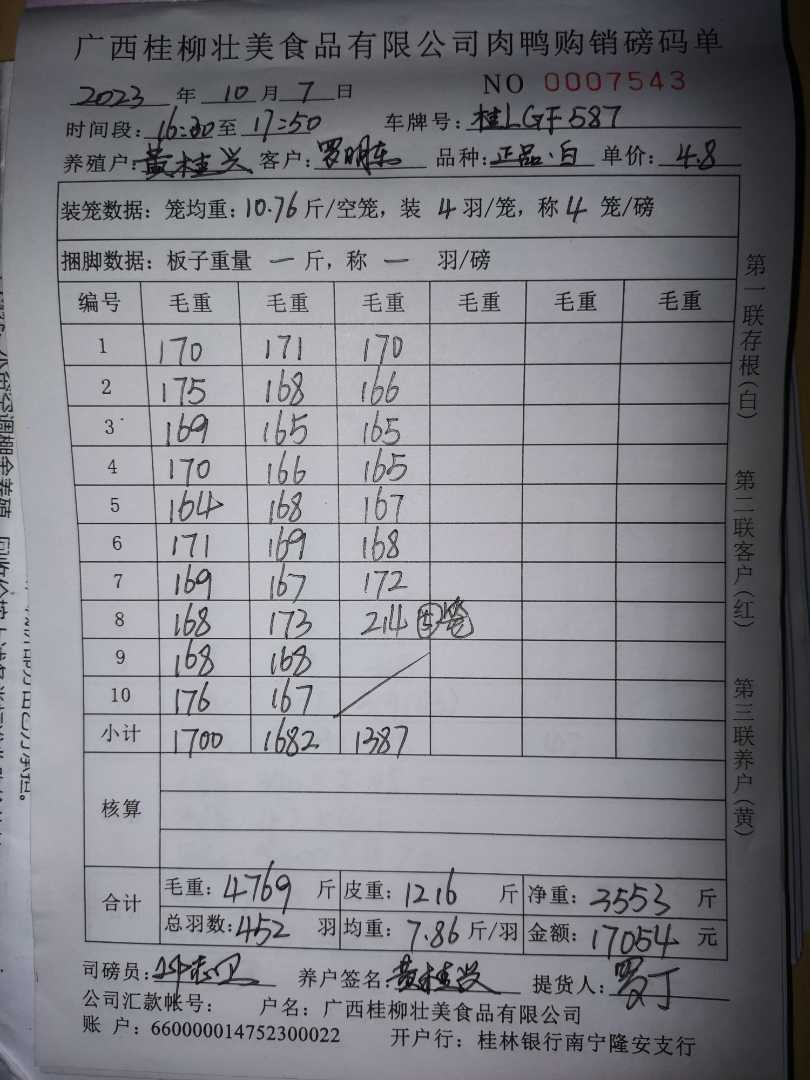 广西桂柳壮美食品有限公司肉鸭购销磅码单
2023 年 10 月 7 日 NO 0007543
时间段: 16:30 至 17:50 车牌号: 桂LGF587
养殖户: 黄桂兴 客户: 罗明东 品种: 正品·白 单价: 4.8
装笼数据: 笼均重: 10.76 斤/空笼, 装 4 羽/笼, 称 4 笼/磅
捆脚数据: 板子重量 一 斤, 称 一 羽/磅
编号 毛重 毛重 毛重 毛重 毛重 毛重
1 170 171 170
2 175 168 166
3 169 165 165
4 170 166 165
5 164 168 167
6 171 169 168
7 169 167 172
8 168 173 214 5笼
9 168 168
10 176 167
小计 1700 1682 1387
核算
合计 毛重: 4769 斤 皮重: 1216 斤 净重: 3553 斤
总羽数: 452 羽 均重: 7.86 斤/羽 金额: 17054 元
司磅员: 养户签名 黄桂兴 提货人: 罗丁
公司汇款帐号: 户名: 广西桂柳壮美食品有限公司
账 户: 660000014752300022 开户行: 桂林银行南宁隆安支行
第一联存根(白) 第二联客户(红) 第三联养户(黄)